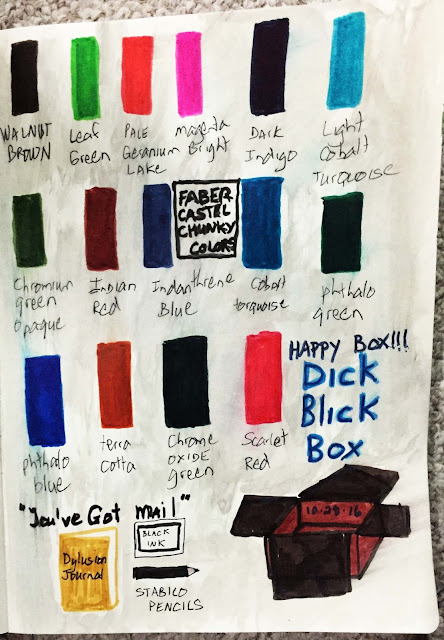 WALNUT
BROWN
Leaf
Green
PALE
Geranium
LAKE
Magenta
Bright
DARK
Indigo
Light
Cobalt
Turquoise
FABER
CASTEL
CHUNKY
COLORS
Chromium
green
opaque
Indian
Red
Indanthrene
Blue
Cobalt
turquoise
phthalo
green
HAPPY BOX!!!
Dick
Blick
Box
phthalo
blue
terra
cotta
Chrome
OXIDE
green
Scarlet
Red
"You've Got Mail"
Dylusion
Journal
BLACK
INK
STABILO
PENCILS
10·29·16